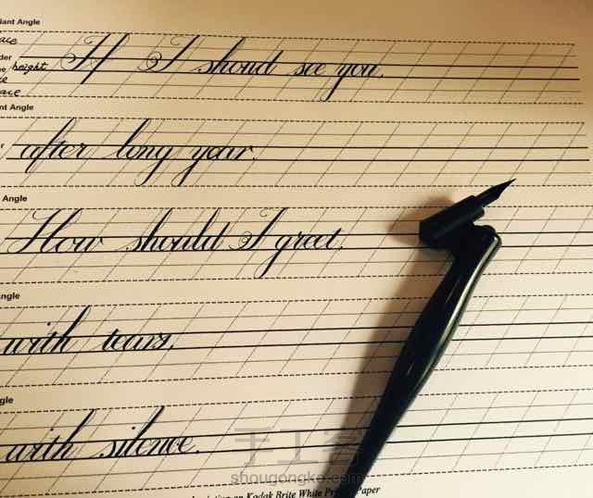 iant Angle
If I shoud see you.
height
nt Angle
after long year.
Angle
How should I greet.
ngle
with tears,
gle
with silence.
手工客
shougongke.com
on Kodak Brite White Paper